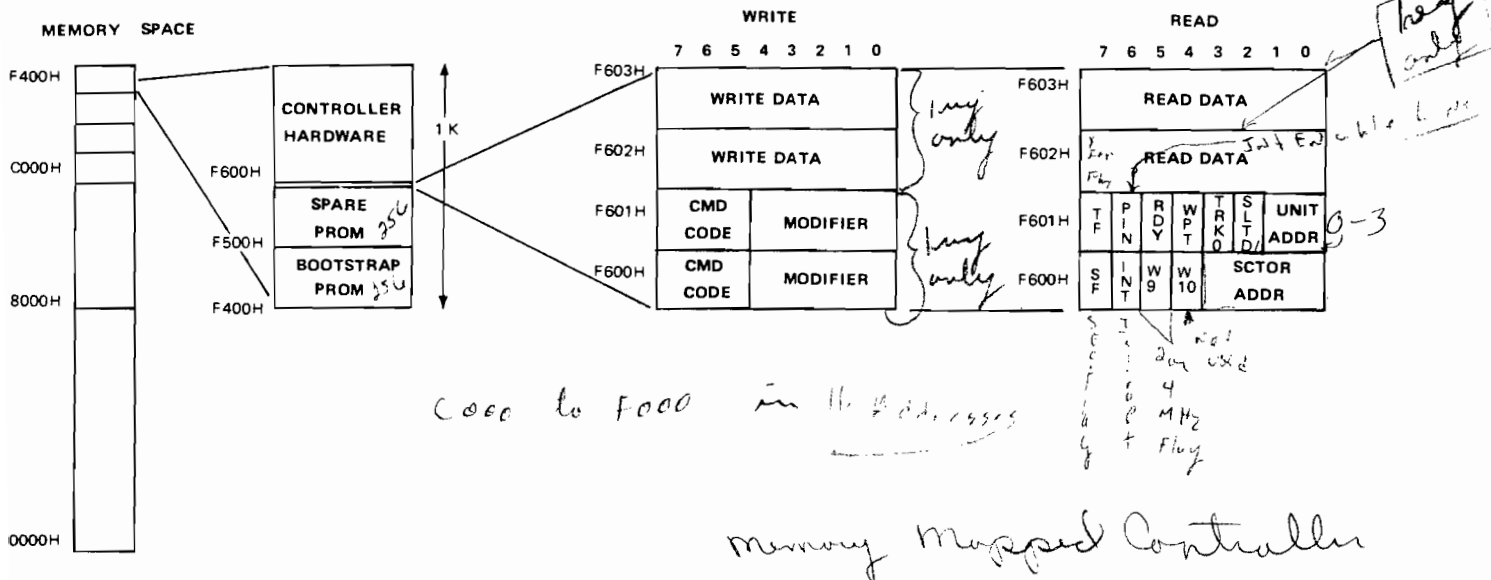 MEMORY SPACE
F400H
C000H
8000H
0000H
CONTROLLER
HARDWARE
F600H
SPARE
PROM 256
F500H
BOOTSTRAP
PROM 256
F400H
1 K
WRITE
7 6 5 4 3 2 1 0
F603H
WRITE DATA
F602H
WRITE DATA
F601H
CMD
CODE
MODIFIER
F600H
CMD
CODE
MODIFIER
only
only
READ
7 6 5 4 3 2 1 0
only
F603H
READ DATA
F602H
READ DATA
F601H
TF
PIN
RDY
WPT
TRK0
SLTD
UNIT
ADDR
0-3
F600H
SF
INT
W9
W10
SCTOR
ADDR
not
used
2 or
4
MHz
Flag
C000 to F000 in Addresses
Memory Mapped Controller